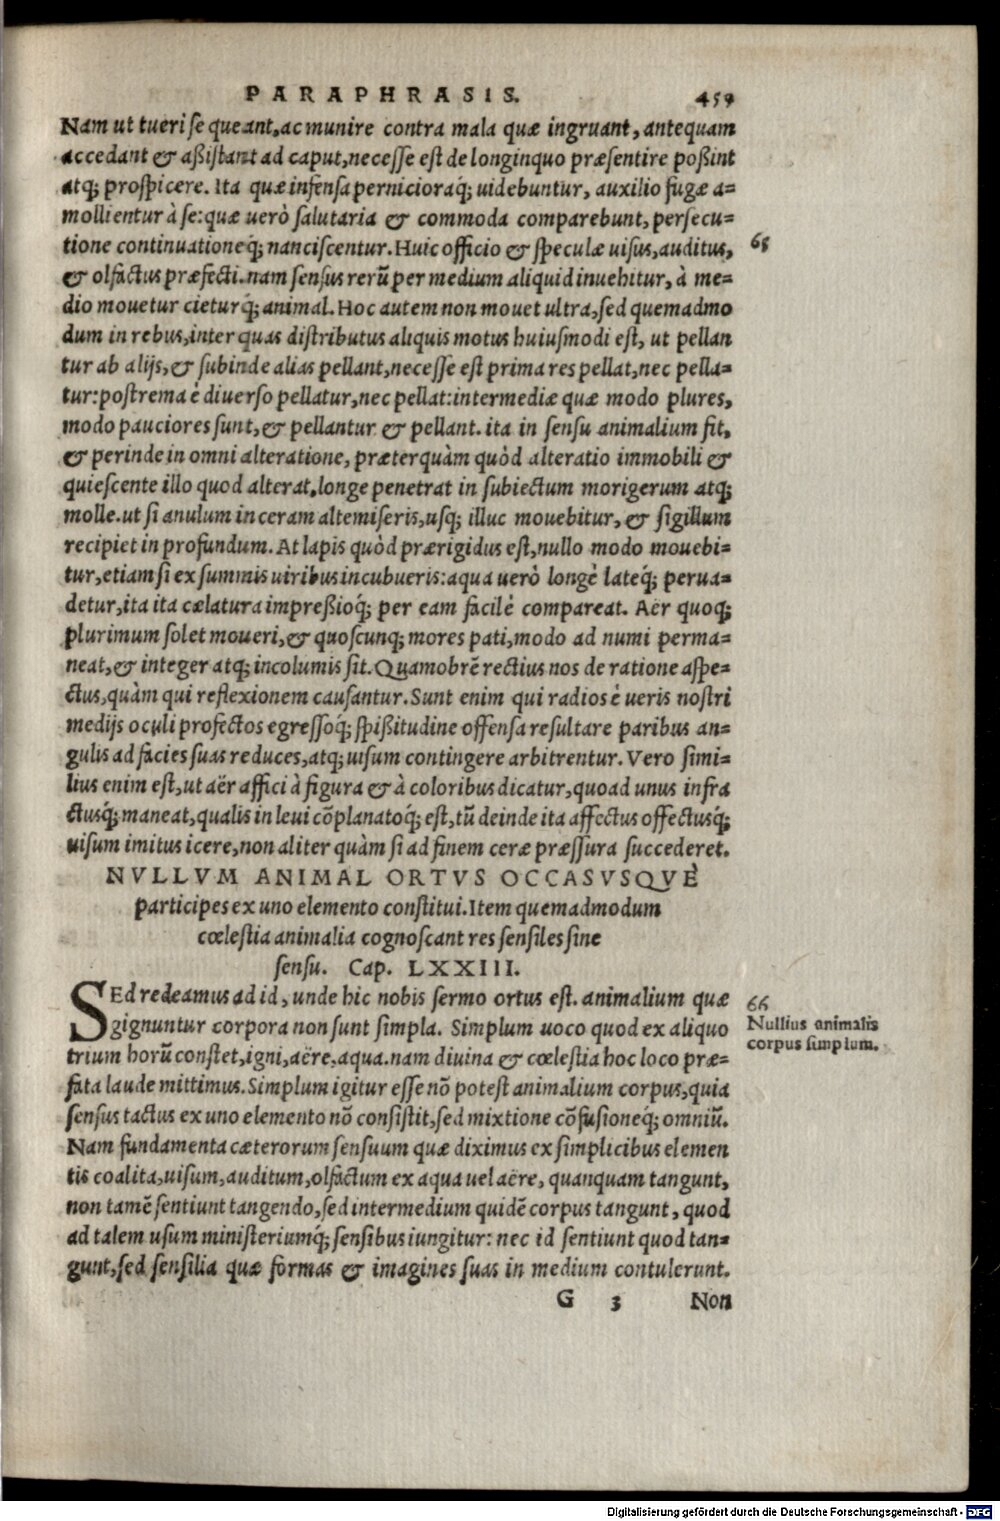 PARAPHRASIS. 459
Nam ut tueri se queant, ac munire contra mala quæ ingruant, antequam
accedant & aßistant ad caput, necesse est de longinquo præsentire poßint
atq; prospicere. Ita quæ infensa pernicioraq́; uidebuntur, auxilio fugæ a=
mollientur à se: quæ uerò salutaria & commoda comparebunt, persecu=
tione continuationeq́; nanciscentur. Huic officio & speculæ uisus, auditus,
& olfactus præfecti. nam sensus rerũ per medium aliquid inuehitur, à me=
dio mouetur cieturq́; animal. Hoc autem non mouet ultra, sed quemadmo
dum in rebus, inter quas distributus aliquis motus huiusmodi est, ut pellan
tur ab alijs, & subinde alias pellant, necesse est prima res pellat, nec pella=
tur: postrema è diuerso pellatur, nec pellat: intermediæ quæ modo plures,
modo pauciores sunt, & pellantur & pellant. ita in sensu animalium fit,
& perinde in omni alteratione, præterquàm quòd alteratio immobili &
quiescente illo quod alterat, longe penetrat in subiectum morigerum atq;
molle. ut si anulum in ceram alte miseris, usq; illuc mouebitur, & sigillum
recipiet in profundum. At lapis quòd prærigidus est, nullo modo mouebi=
tur, etiam si ex summis uiribus incubueris: aqua uerò longè lateq́; perua=
detur, ita ita cælatura impreßioq́; per eam facilè compareat. Aër quoq;
plurimum solet moueri, & quoscunq; mores pati, modo ad numi perma=
neat, & integer atq; incolumis sit. Quamobrẽ rectius nos de ratione aspe=
ctus, quàm qui reflexionem causantur. Sunt enim qui radios è ueris nostri
medijs oculi profectos egressoq́; spißitudine offensa resultare paribus an=
gulis ad facies suas reduces, atq; uisum contingere arbitrentur. Vero simi=
lius enim est, ut aër affici à figura & à coloribus dicatur, quoad unus infra
ctusq́; maneat, qualis in leui cõplanatoq́; est, tũ deinde ita affectus offectusq́;
uisum imitus icere, non aliter quàm si ad finem ceræ præssura succederet.
NVLLVM ANIMAL ORTVS OCCASVSQVÈ
participes ex uno elemento constitui. Item quemadmodum
cœlestia animalia cognoscant res sensiles sine
sensu. Cap. LXXIII.
SEd redeamus ad id, unde hic nobis sermo ortus est. animalium quæ
gignuntur corpora non sunt simpla. Simplum uoco quod ex aliquo
trium horũ constet, igni, aëre, aqua. nam diuina & cœlestia hoc loco præ=
fata laude mittimus. Simplum igitur esse nõ potest animalium corpus, quia
sensus tactus ex uno elemento nõ consistit, sed mixtione cõfusioneq́; omniũ.
Nam fundamenta cæterorum sensuum quæ diximus ex simplicibus elemen
tis coalita, uisum, auditum, olfactum ex aqua uel aëre, quanquam tangunt,
non tamẽ sentiunt tangendo, sed intermedium quidẽ corpus tangunt, quod
ad talem usum ministeriumq́; sensibus iungitur: nec id sentiunt quod tan=
gunt, sed sensilia quæ formas & imagines suas in medium contulerunt.
G 3 Non
65
66
Nullius animalis
corpus simplum.
Digitalisierung gefördert durch die Deutsche Forschungsgemeinschaft - DFG